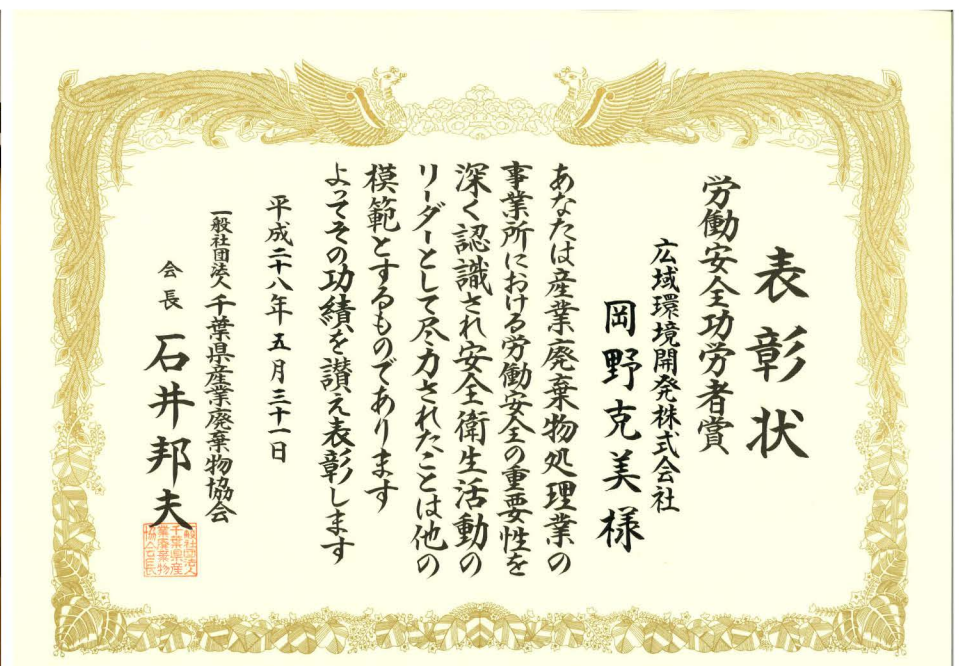 表彰状
労働安全功労者賞
広域環境開発株式会社
岡野克美様
あなたは産業廃棄物処理業の
事業所における労働安全の重要性を
深く認識され安全衛生活動の
リーダーとして尽力されたことは他の
模範とするものであります
よってその功績を讃え表彰します
平成二十八年五月三十一日
一般社団法人千葉県産業廃棄物協会
会長 石井邦夫
一般社団法人
千葉県産
業廃棄物
協会会長